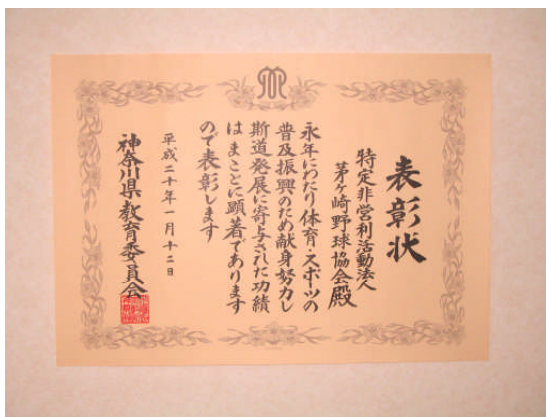 表彰状
特定非営利活動法人
茅ヶ崎野球協会殿
永年にわたり体育・スポーツの
普及振興のため献身努力し
斯道発展に寄与された功績
はまことに顕著であります
ので表彰します
平成二十年一月十二日
神奈川県教育委員会